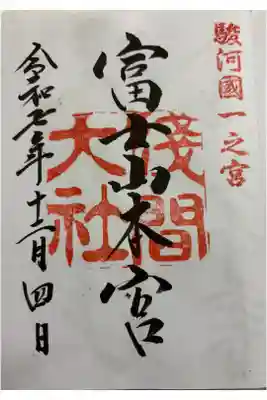 駿河國一之宮
富士山本宮
淺間
大社
令和七年十二月四日